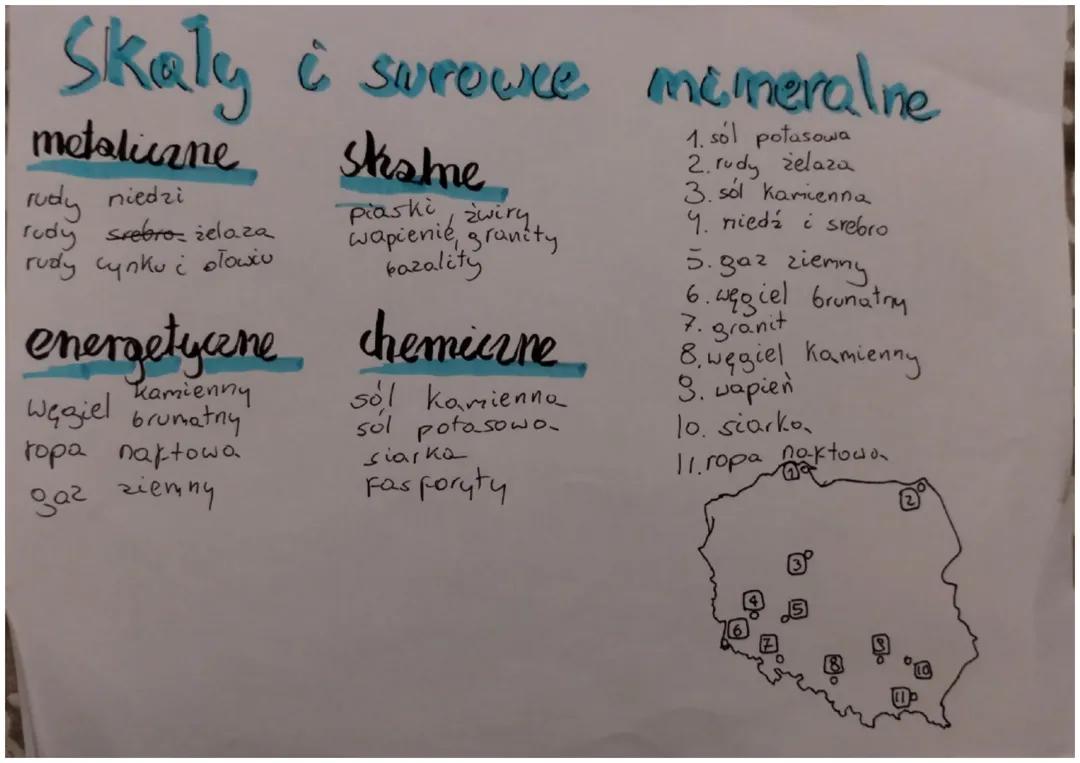 Skały i surowce mineralne
metaliczne
rudy miedzi
rudy srebro żelaza
rudy cynku i ołowiu
skalne
piaski, żwiry
wapienie, granity
bazality
energetyczne
węgiel kamienny
brunatny
ropa naftowa
gaz ziemny
chemiczne
sól kamienna
sól potasowa
siarka
fasforyty
1. sól potasowa
2. rudy żelaza
3. sól kamienna
4. miedź i srebro
5. gaz ziemny
6. węgiel brunatny
7. granit
8. węgiel kamienny
9. wapień
10. siarka
11. ropa naftowa
1
2
3
4
5
6
7
9
8
10
11